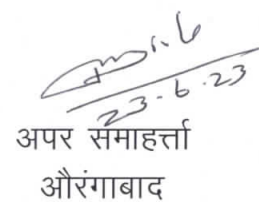 23.6.23
अपर समाहर्त्ता
औरंगाबाद